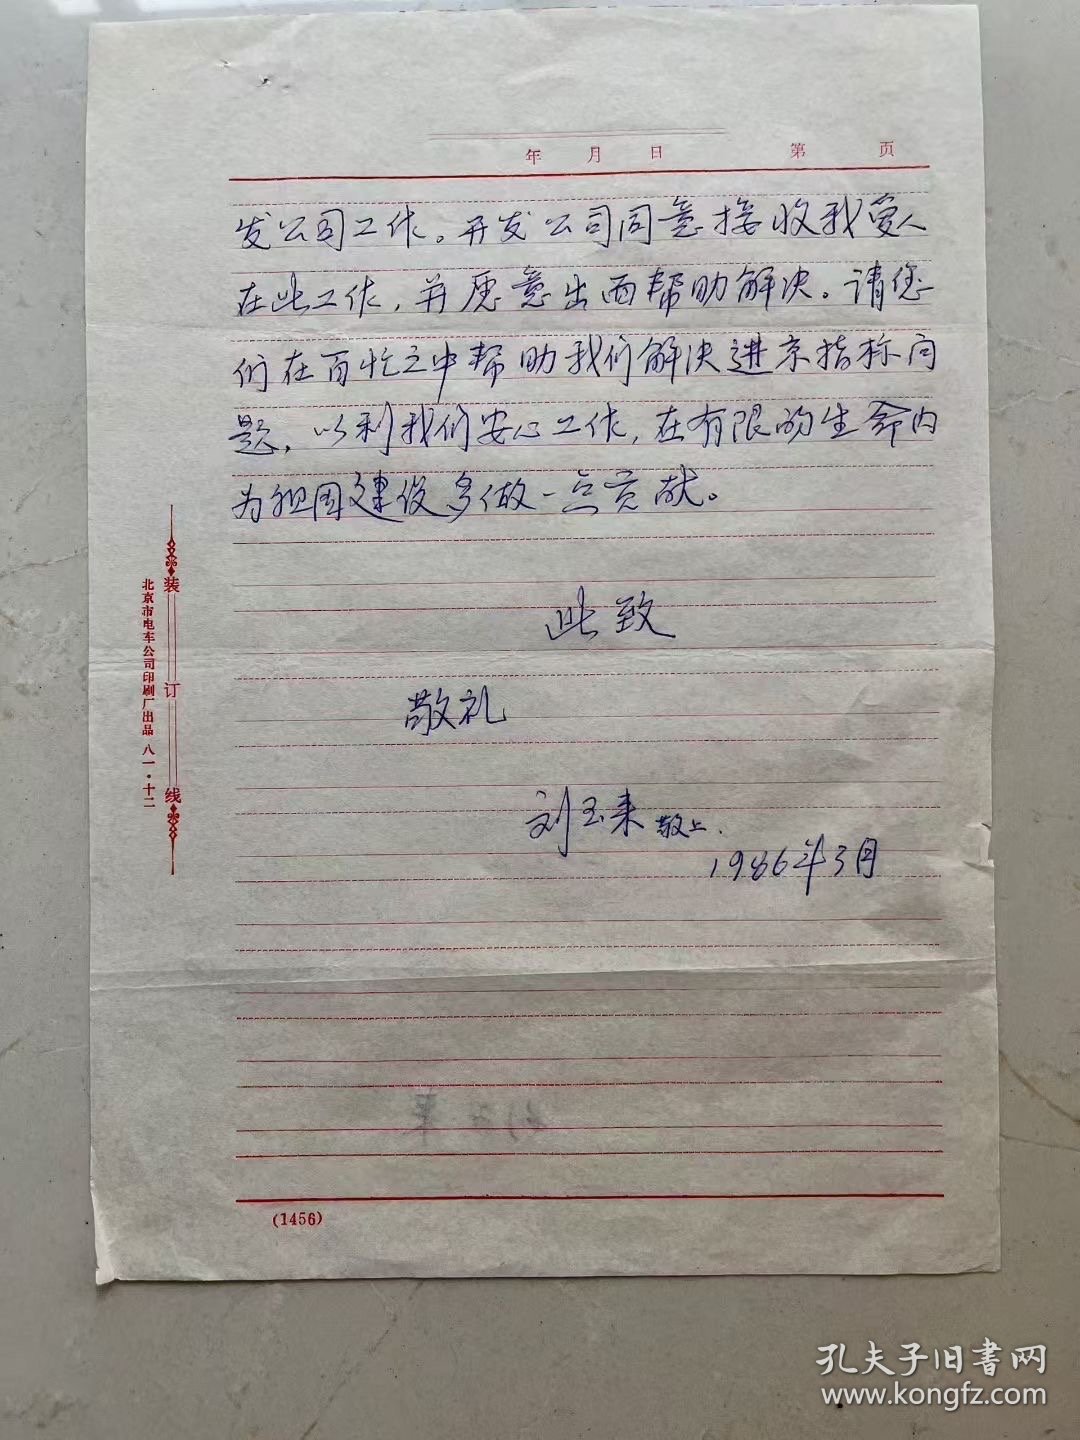 年 月 日 第 页
发公司工作。开发公司同意接收我爱人
在此工作，并愿意出面帮助解决。请您
们在百忙之中帮助我们解决进京指标问
题，以利我们安心工作，在有限的生命内
为祖国建设多做一点贡献。
此致
敬礼
刘玉来敬上.
1986年3月
装订线
北京市电车公司印刷厂出品 八一·十二
(1456)
孔夫子旧書网
www.kongfz.com